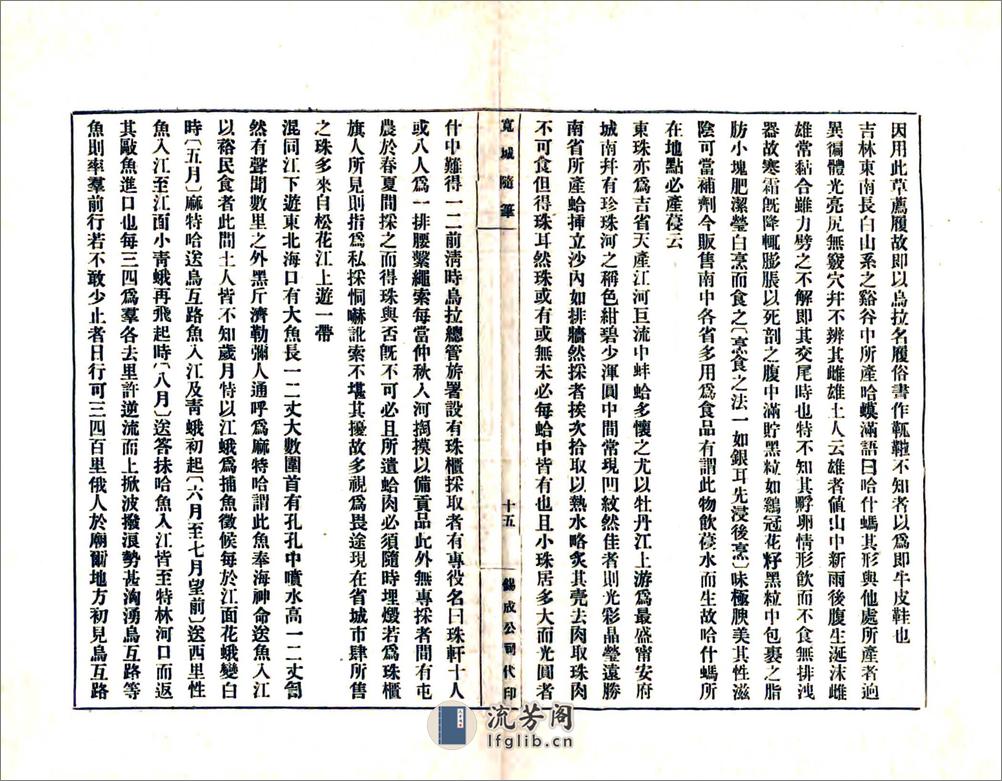 因用此草薦履故即以烏拉名履俗書作靰鞡不知者以爲即牛皮鞋也
吉林東南長白山系之谿谷中所產哈蟆滿語曰哈什螞其形與他處所產者迥
異徧體光亮尻無竅穴幷不辨其雌雄土人云雄者值山中新雨後腹生涎沫雌
雄常黏合雖力劈之不解即其交尾時也特不知其孵卵情形飲而不食無排洩
器故寒霜旣降輒膨脹以死剖之腹中滿貯黑粒如鷄冠花籽黑粒中包裹之脂
肪小塊肥潔瑩白烹而食之〔烹食之法一如銀耳先浸後烹〕味極腴美其性滋
陰可當補劑今販售南中各省多用爲食品有謂此物飲葠水而生故哈什螞所
在地點必產葠云
東珠亦爲吉省天產江河巨流中蚌蛤多懷之尤以牡丹江上游爲最盛甯安府
城南幷有珍珠河之稱色紺碧少渾圓中間常現凹紋然佳者則光彩晶瑩遠勝
南省所產蛤挿立沙內如排牆然採者挨次拾取以熱水略炙其壳去肉取珠肉
不可食但得珠耳然珠或有或無未必每蛤中皆有也且小珠居多大而光圓者
寬城隨筆
十五
錫成公司代印
什中難得一二前淸時烏拉總管旂署設有珠櫃採取者有專役名曰珠軒十人
或八人爲一排腰繫繩索每當仲秋入河掏摸以備貢品此外無專採者間有屯
農於春夏間採之而得珠與否旣不可必且所遺蛤肉必須隨時埋燬若爲珠櫃
旗人所見則指爲私採恫嚇訛索不堪其擾故多視爲畏途現在省城市肆所售
之珠多來自松花江上遊一帶
混同江下遊東北海口有大魚長一二丈大數圍首有孔孔中噴水高一二丈訇
然有聲聞數里之外黑斤濟勒彌人通呼爲麻特哈謂此魚奉海神命送魚入江
以蓿民食者此間土人皆不知歲月特以江蛾爲捕魚徵候每於江面花蛾變白
時〔五月〕麻特哈送烏互路魚入江及靑蛾初起〔六月至七月望前〕送西里性
魚入江至江面小靑蛾再飛起時〔八月〕送答抹哈魚入江皆至特林河口而返
其敺魚進口也每三四爲羣各去里許逆流而上掀波撥浪勢甚洶湧烏互路等
魚則率羣前行若不敢少止者日行可三四百里俄人於廟爾地方初見烏互路
流芳阁
lfglib.cn